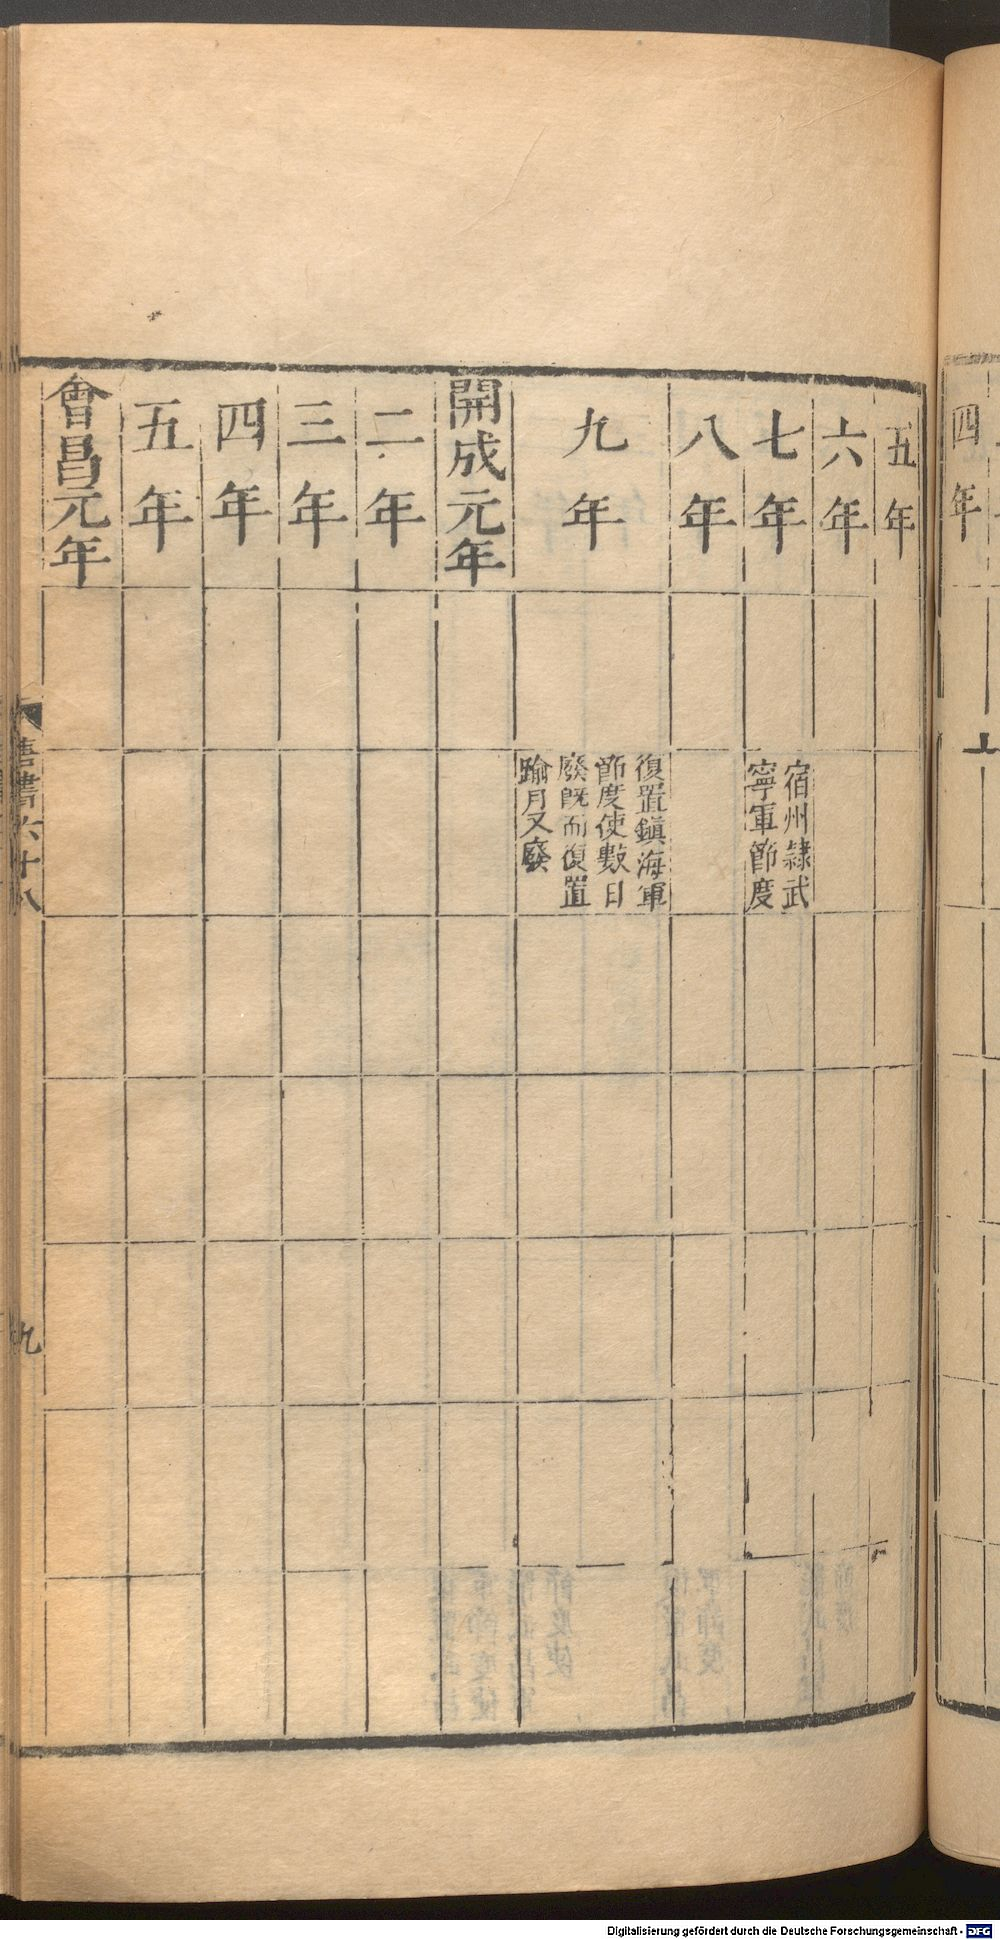 四年
五年
六年
七年
宿州隸武
寧軍節度
八年
九年
復置鎮海軍
節度使數日
廢旣而復置
踰月又廢
開成元年
二年
三年
四年
五年
會昌元年
唐書六十八
九
Digitalisierung gefördert durch die Deutsche Forschungsgemeinschaft - DFG